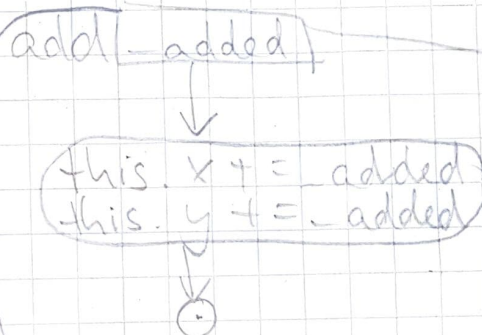 add(_added)
this.x += _added
this.y += _added